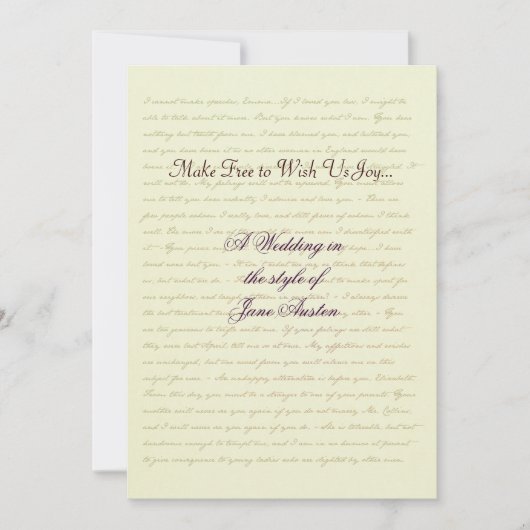 I cannot make speeches, Emma...If I loved you less, I might be
able to talk about it more. But you know what I am. You hear
nothing but truth from me. I have blamed you, and lectured you,
and you have borne it as no other woman in England would have
borne
Make Free to Wish Us Joy...
will not do. My feelings will not be repressed. You must allow
me to tell you how ardently I admire and love you. - There are
few people whom I really love, and still fewer of whom I think
well. The more I of the more am I dissatisfied with
it - You pierce my hope...I have
A Wedding in
loved none but you. - It isn't what we say or think that defines
us, but what we do. - to make sport for
the style of
our neighbors, and laugh at them in our turn? - I always deserve
the best treatment other. - You are
Jane Austen
too generous to trifle with me. If your feelings are still what
they were last April, tell me so at once. My affections and wishes
are unchanged, but one word from you will silence me on this
subject for ever. - An unhappy alternative is before you, Elizabeth.
From this day you must be a stranger to one of your parents. Your
mother will never see you again if you do not marry Mr. Collins,
and I will never see you again if you do. - She is tolerable, but not
handsome enough to tempt me, and I am in no humor at present
to give consequence to young ladies who are slighted by other men.